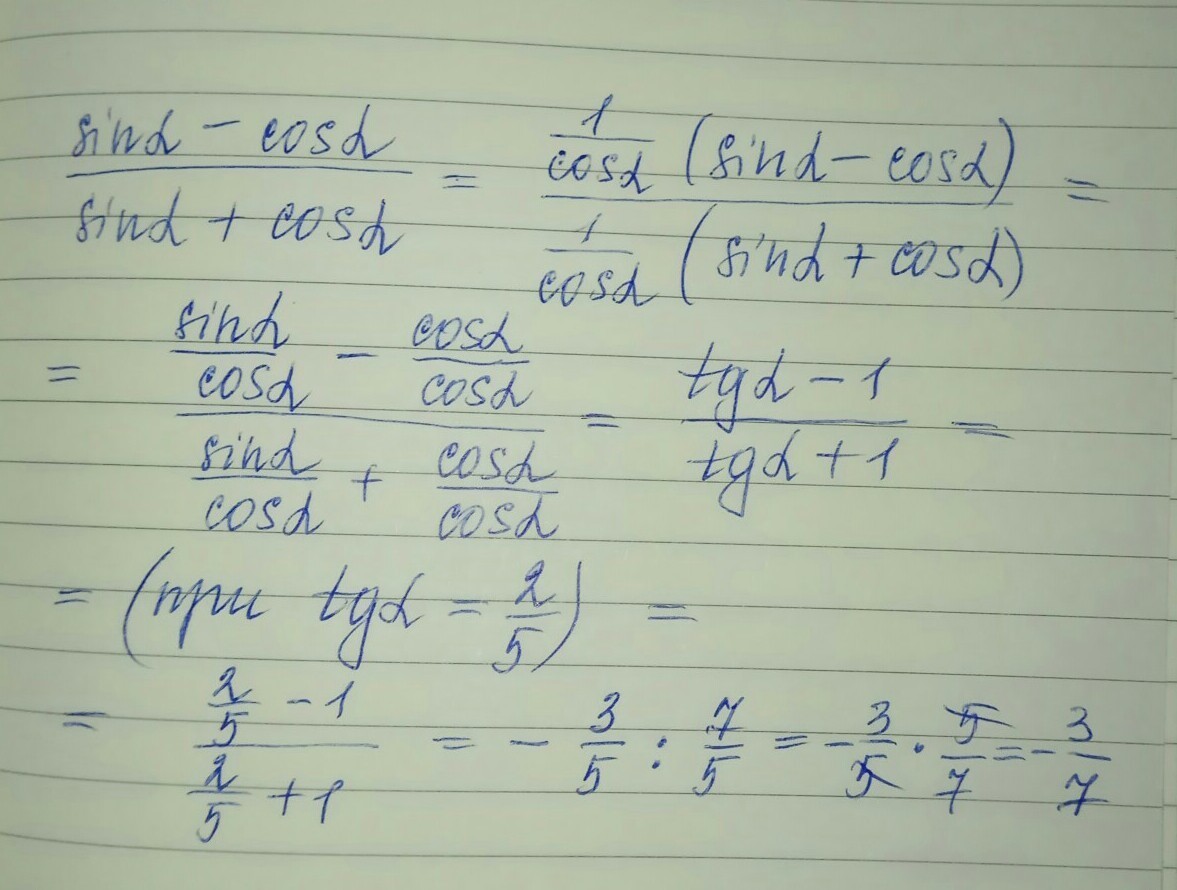 (sinα − cosα)/(sinα + cosα) = (1/cosα (sinα − cosα))/(1/cosα (sinα + cosα)) =
= (sinα/cosα − cosα/cosα)/(sinα/cosα + cosα/cosα) = (tgα − 1)/(tgα + 1) =
= (при tgα = 2/5) =
= (2/5 − 1)/(2/5 + 1) = − 3/5 : 7/5 = − 3/5 · 5/7 = − 3/7